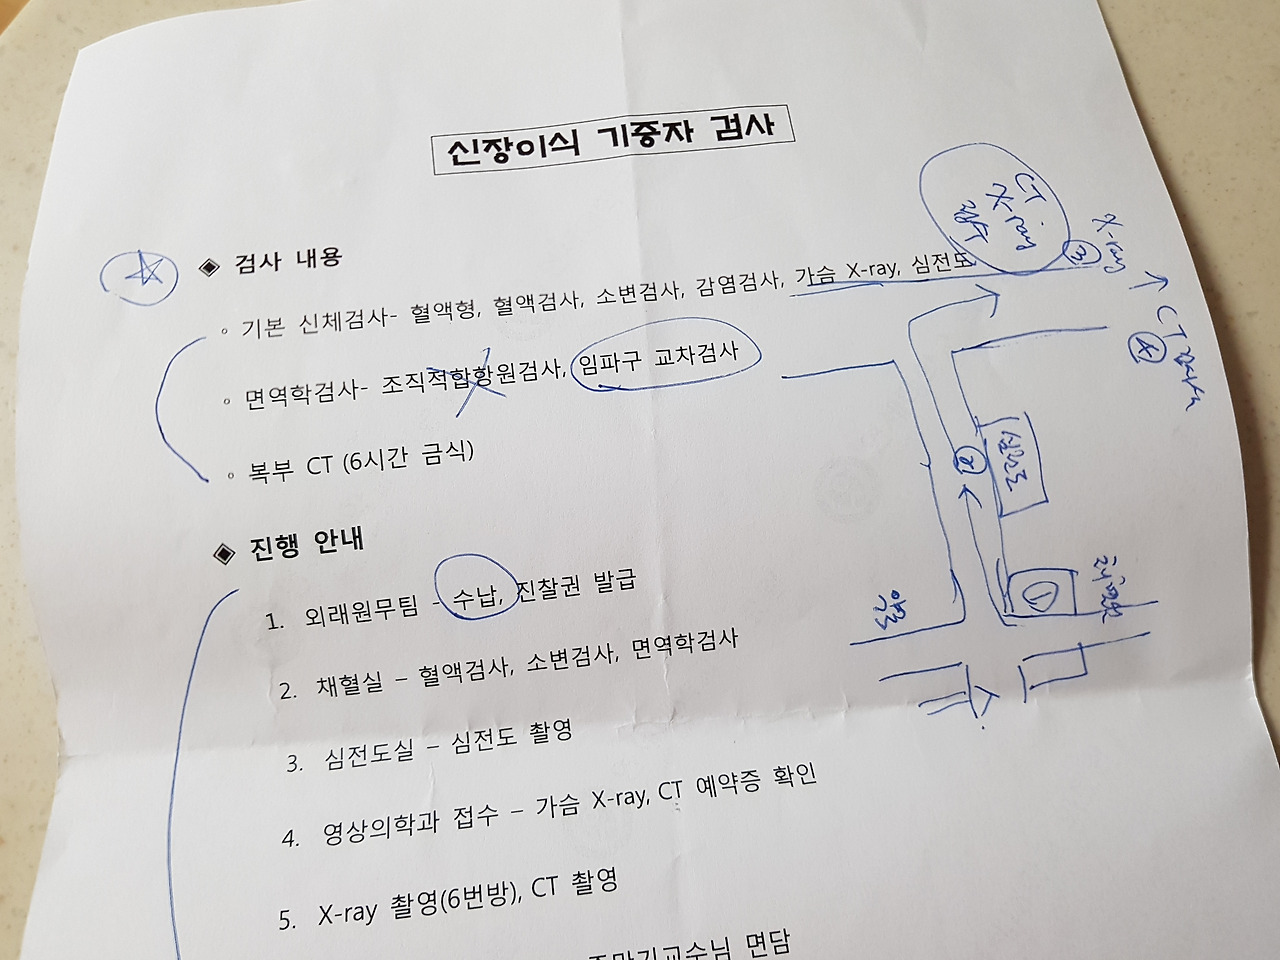 신장이식 기증자 검사
◈ 검사 내용
◦ 기본 신체검사- 혈액형, 혈액검사, 소변검사, 감염검사, 가슴 X-ray, 심전도
◦ 면역학검사- 조직적합항원검사, 임파구 교차검사
◦ 복부 CT (6시간 금식)
◈ 진행 안내
1. 외래원무팀 - 수납, 진찰권 발급
2. 채혈실 – 혈액검사, 소변검사, 면역학검사
3. 심전도실 – 심전도 촬영
4. 영상의학과 접수 – 가슴 X-ray, CT 예약증 확인
5. X-ray 촬영(6번방), CT 촬영
교수님 면담
CT
X-ray
접수
③ X-ray
④ CT
② 심전도
①